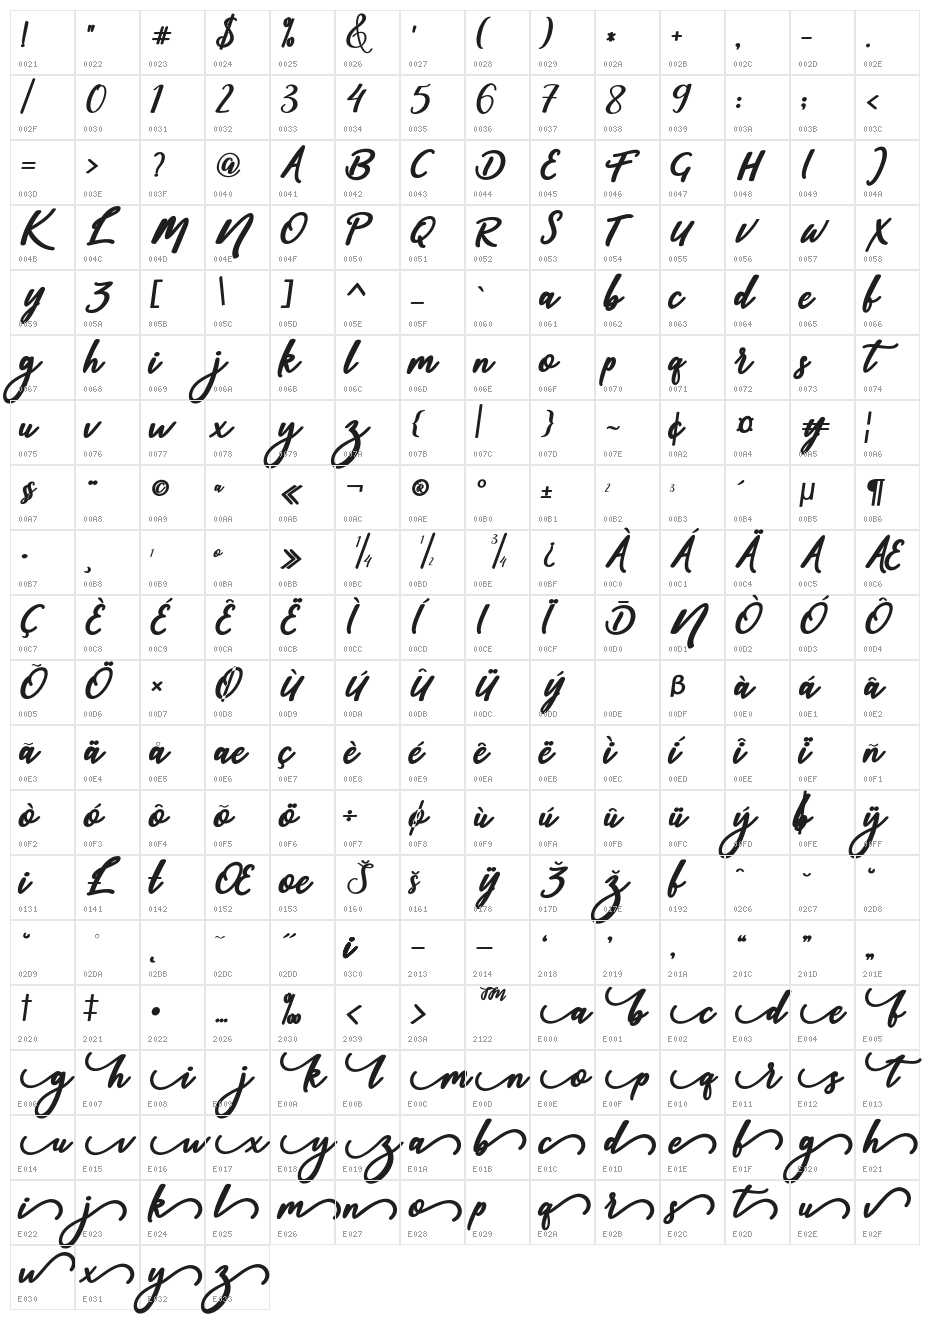 ! " # $ % & ' ( ) * + , - .
0021 0022 0023 0024 0025 0026 0027 0028 0029 002A 002B 002C 002D 002E
/ 0 1 2 3 4 5 6 7 8 9 : ; <
002F 0030 0031 0032 0033 0034 0035 0036 0037 0038 0039 003A 003B 003C
= > ? @ A B C D E F G H I J
003D 003E 003F 0040 0041 0042 0043 0044 0045 0046 0047 0048 0049 004A
K L M N O P Q R S T U V W X
004B 004C 004D 004E 004F 0050 0051 0052 0053 0054 0055 0056 0057 0058
Y Z [ \ ] ^ _ ` a b c d e f
0059 005A 005B 005C 005D 005E 005F 0060 0061 0062 0063 0064 0065 0066
g h i j k l m n o p q r s t
0067 0068 0069 006A 006B 006C 006D 006E 006F 0070 0071 0072 0073 0074
u v w x y z { | } ~ ¢ ¤ ¥ ¦
0075 0076 0077 0078 0079 007A 007B 007C 007D 007E 00A2 00A4 00A5 00A6
§ ¨ © ª « ¬ ® ° ± ² ³ ´ µ ¶
00A7 00A8 00A9 00AA 00AB 00AC 00AE 00B0 00B1 00B2 00B3 00B4 00B5 00B6
· ¸ ¹ º » ¼ ½ ¾ ¿ À Á Ä A Æ
00B7 00B8 00B9 00BA 00BB 00BC 00BD 00BE 00BF 00C0 00C1 00C4 00C5 00C6
Ç È É Ê Ë Ì Í I Ï Ð N Ò Ó Ô
00C7 00C8 00C9 00CA 00CB 00CC 00CD 00CE 00CF 00D0 00D1 00D2 00D3 00D4
Õ Ö × Ø Ù Ú Û Ü Ý ß à á â
00D5 00D6 00D7 00D8 00D9 00DA 00DB 00DC 00DD 00DE 00DF 00E0 00E1 00E2
ã ä å æ ç è é ê ë ì í î ï ñ
00E3 00E4 00E5 00E6 00E7 00E8 00E9 00EA 00EB 00EC 00ED 00EE 00EF 00F1
ò ó ô õ ö ÷ ø ù ú û ü ý þ ÿ
00F2 00F3 00F4 00F5 00F6 00F7 00F8 00F9 00FA 00FB 00FC 00FD 00FE 00FF
i Ł ł Œ œ Š š Ÿ Ž ž ƒ ˆ ˇ ˘
0131 0141 0142 0152 0153 0160 0161 0178 017D 017E 0192 02C6 02C7 02D8
˘ ˚ ˛ ˜ ˝ i – — ‘ ’ ‚ “ ” „
02D9 02DA 02DB 02DC 02DD 03C0 2013 2014 2018 2019 201A 201C 201D 201E
† ‡ • … ‰ ‹ › ™ a b c d e f
2020 2021 2022 2026 2030 2039 203A 2122 E000 E001 E002 E003 E004 E005
g h i j k l m n o p q r s t
E006 E007 E008 E009 E00A E00B E00C E00D E00E E00F E010 E011 E012 E013
u v w x y z a b c d e f g h
E014 E015 E016 E017 E018 E019 E01A E01B E01C E01D E01E E01F E020 E021
i j k l m n o p q r s t u v
E022 E023 E024 E025 E026 E027 E028 E029 E02A E02B E02C E02D E02E E02F
w x y z
E030 E031 E032 E033